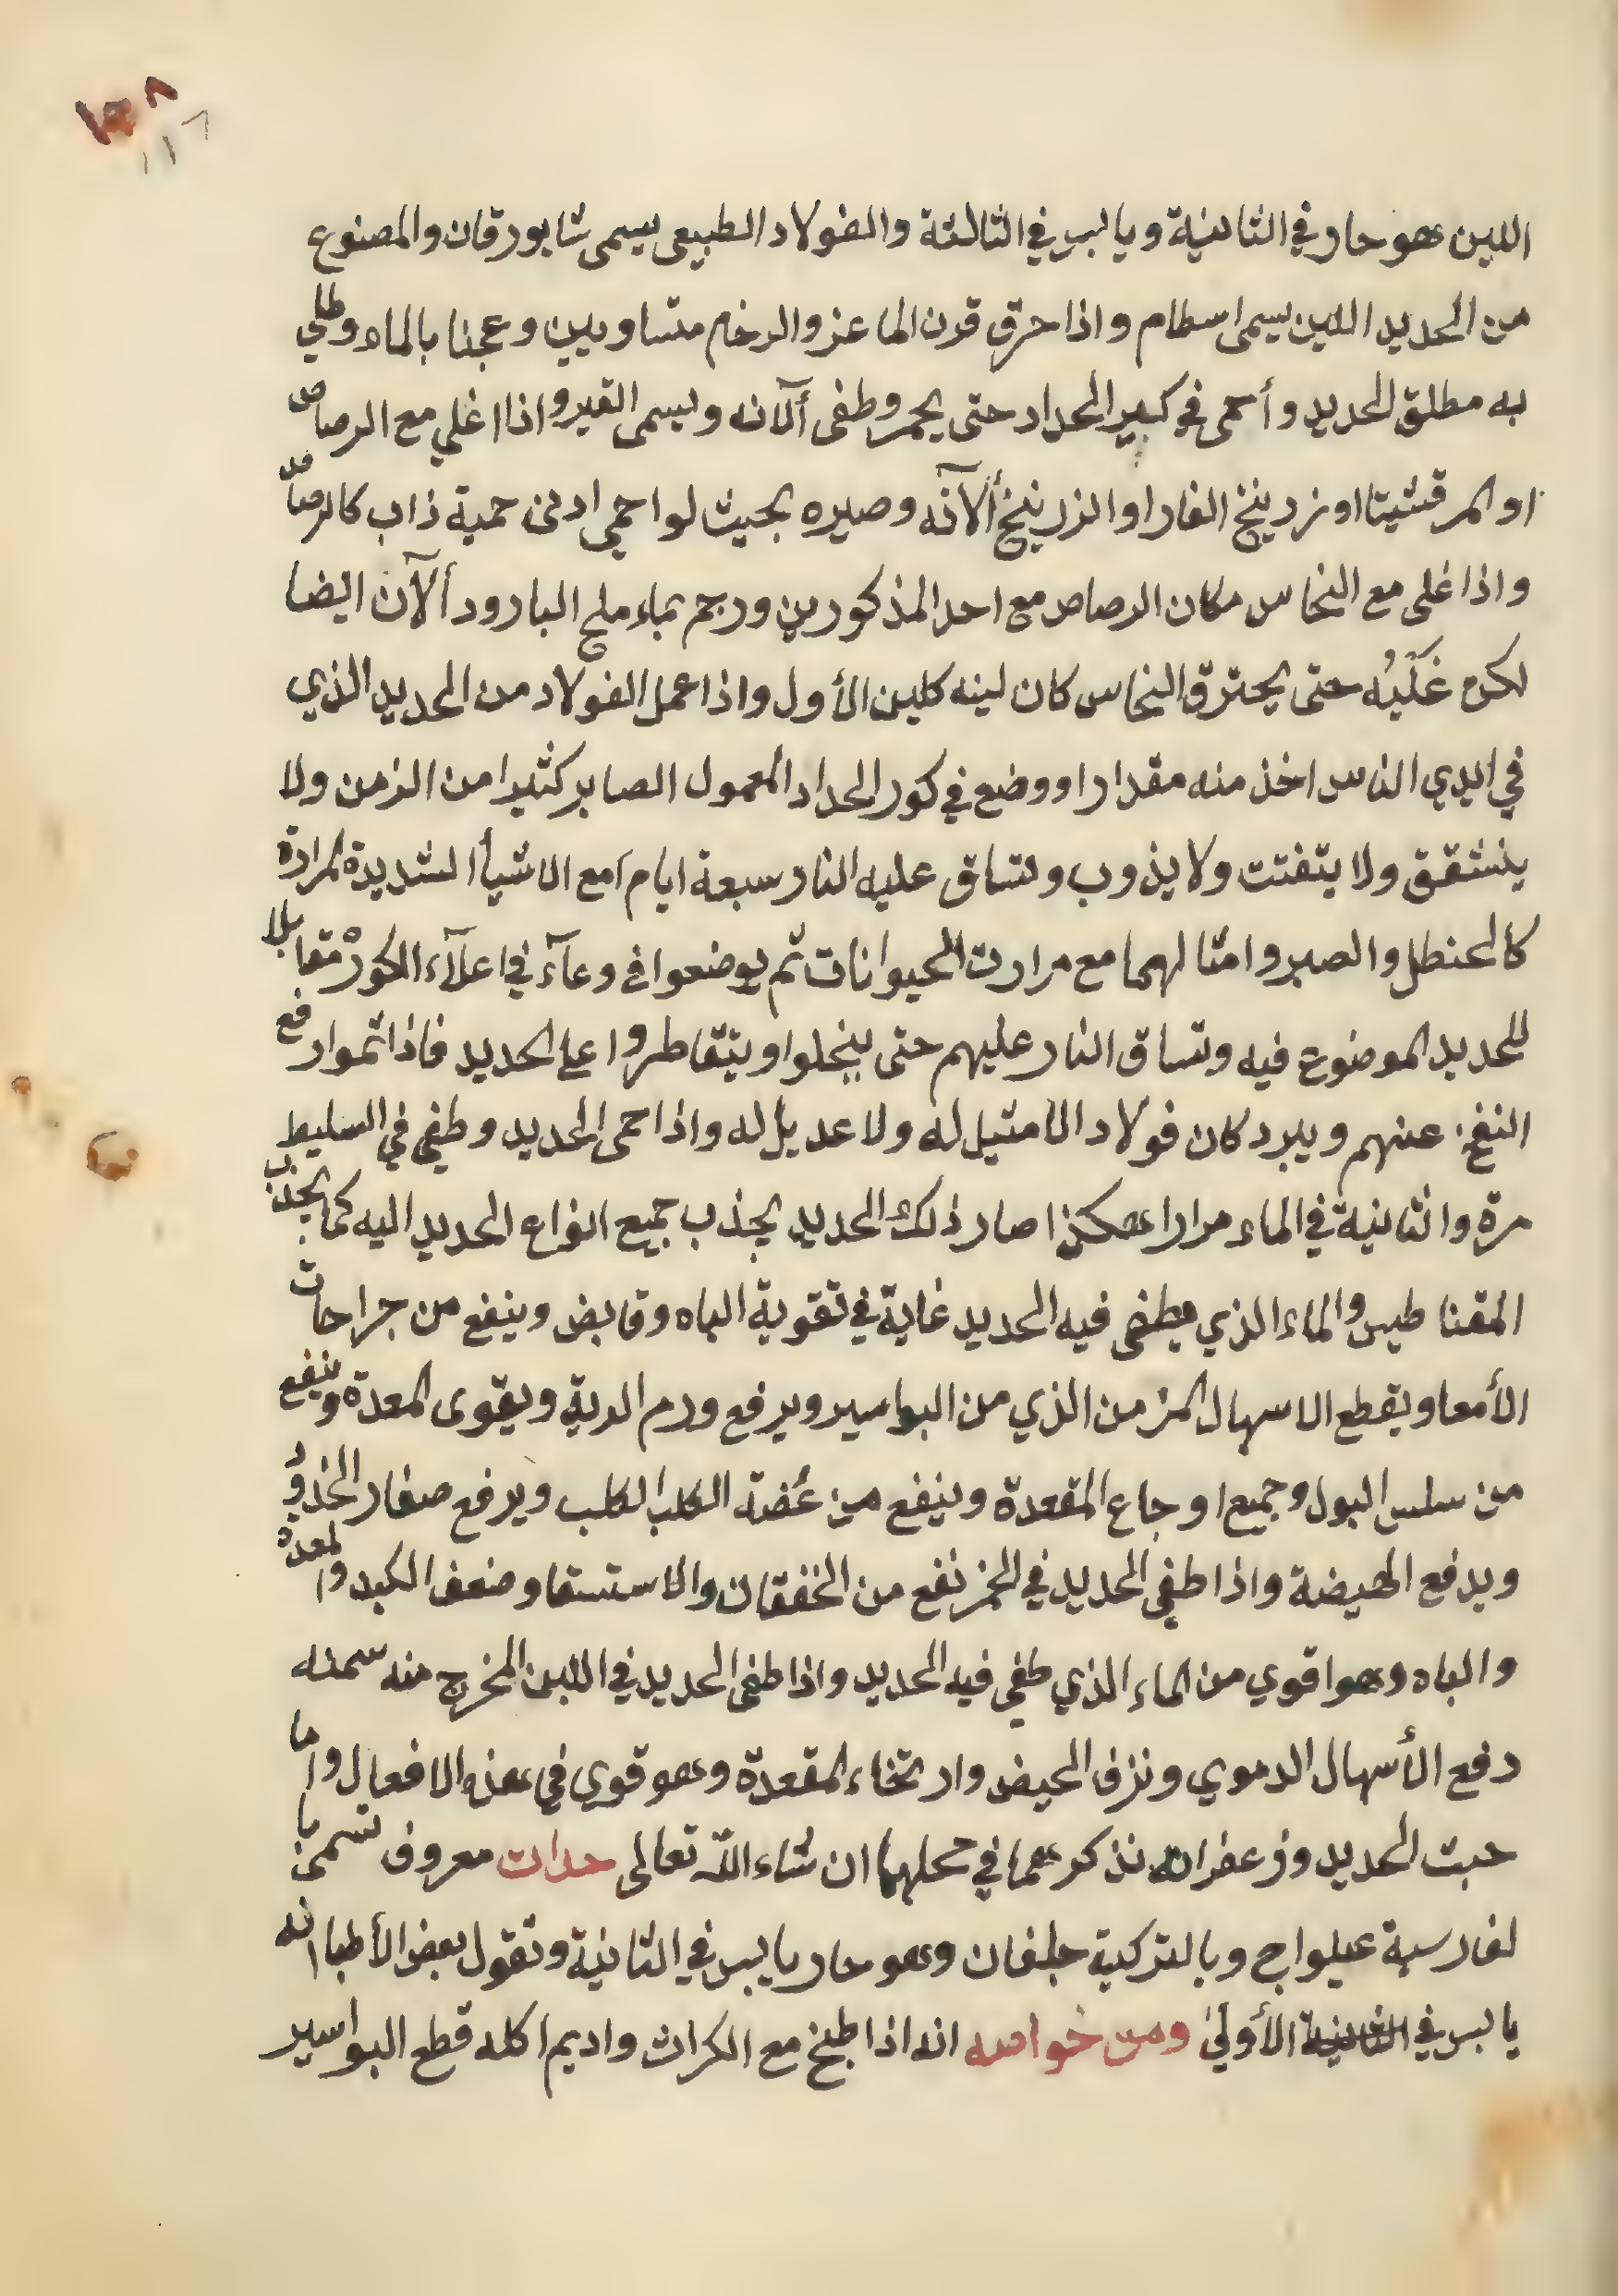 ١١٦
اللين هو حار في الثانية ويابس في الثالثة والفولاد الطبيعي يسمى شابورقان والمصنوع
من الحديد اللين يسمى اسطام واذا حرق قرن الماعز والرخام متساويين وعجنا بالماء وطلي
به مطلق الحديد وأحمى في كير الحداد حتى يحمر وطفى ألآنه ويسمى القيروا اذا اغلي مع الرصاص
او المرقشيتا او زرنيخ الفار او الزرنيخ ألآنه وصيره بحيث لو احمي ادنى حمية ذاب كالرصاص
واذا غلى مع النحاس مكان الرصاص مع احد المذكورين ورجم بماء ملح البارود ألآن ايضا
لكن غَلَيْه حتى يحترق النحاس كان لينه كلين الأول واذا عمل الفولاد من الحديد الذي
في ايدي الناس اخذ منه مقدارا ووضع في كور الحداد المعمول الصابر كثيرا من الزمن ولا
ينشقق ولا يتفتت ولا يذوب وتساق عليه النار سبعة ايام مع الاشيأ الشديدة المرارة
كالحنطل والصبر وامثالهما مع مرارت الحيوانات ثم يوضعوا في وعآء في اعلآء الكور مقابلا
للحديد الموضوع فيه وتساق النار عليهم حتى ينحلوا ويتقاطروا على الحديد فاذا تموا رفع
النفخ عنهم ويبرد كان فولاد الامثيل له ولا عديل له واذا حمى الحديد وطفي في السليط
مرة والثانية في الماء مرارا هكذا صار ذلك الحديد يجذب جميع انواع الحديد اليه كما يجذب
المقناطيس والماء الذي يطفى فيه الحديد غاية في تقوية الباه وقابض وينفع من جراحات
الأمعا ويقطع الاسهال المزمن الذي من البواسير ويرفع ورم الرية ويقوى المعدة وينفع
من سلس البول وجميع اوجاع المقعدة وينفع من عُضة الكلب الكلب ويرفع صغار الخدو
ويدفع الهيضة واذا طفي الحديد في الخمر نفع من الخفقان والاستسقا وضعف الكبد والمعدة
والباه وهو اقوي من الماء الذي طفي فيه الحديد واذا طفى الحديد في اللبن المخرج منه سمنه
دفع الأسهال الدموي ونزف الحيض وارتخاء المقعدة وهو قوى في هذه الافعال واما
خبث الحديد وزعفرانه نذكرهما في محلهما ان شاء الله تعالى حدات معروف تسمى با
لفارسية غيلواج وبالتركية جلغان وهو حار يابس في الثانية وتقول بعض الأطبا انه
يابس في الثانية الأولى ومن خواصه انه اذا طبخ مع الكراث واديم اكله قطع البواسير